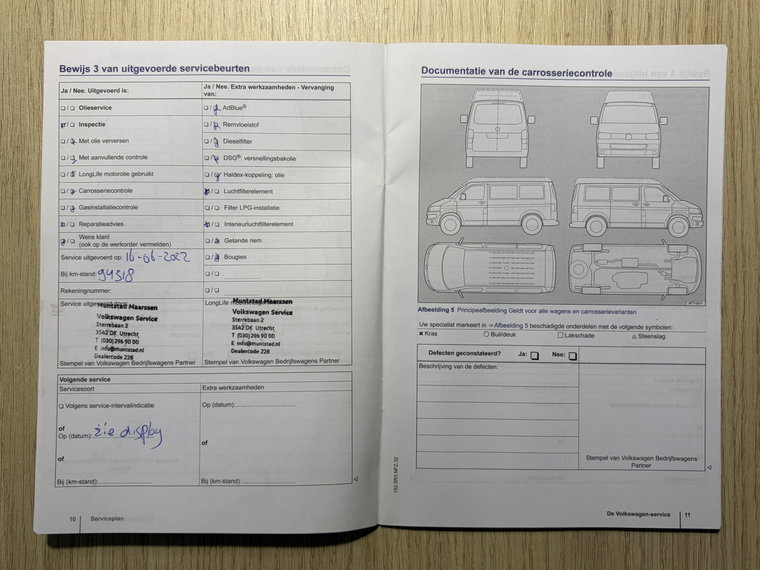 Bewijs 3 van uitgevoerde servicebeurten
Ja / Nee. Uitgevoerd is:
Ja / Nee. Extra werkzaamheden - Vervanging van:
❏ / ❏ Olieservice
❏ / ❏ AdBlue®
❏ / ❏ Inspectie
❏ / ❏ Remvloeistof
❏ / ❏ Met olie verversen
❏ / ❏ Dieselfilter
❏ / ❏ Met aanvullende controle
❏ / ❏ DSG®: versnellingsbakolie
❏ / ❏ LongLife motorolie gebruikt
❏ / ❏ Haldex-koppeling: olie
❏ / ❏ Carrosseriecontrole
❏ / ❏ Luchtfilterelement
❏ / ❏ Gasinstallatiecontrole
❏ / ❏ Filter LPG-installatie
❏ / ❏ Reparatieadvies
❏ / ❏ Interieurluchtfilterelement
❏ / ❏ Wens klant
(ook op de werkorder vermelden)
❏ / ❏ Getande riem
Service uitgevoerd op: 16-06-2022
❏ / ❏ Bougies
Bij km-stand: 94518
❏ / ❏
Rekeningnummer:
❏ / ❏
Service uitgevoerd door:
Muntstad Maarssen
Volkswagen Service
Sterrebaan 2
3542 DK Utrecht
T (030) 296 90 00
E info@muntstad.nl
Dealercode 228
Stempel van Volkswagen Bedrijfswagens Partner
LongLife
Muntstad Maarssen
Volkswagen Service
Sterrebaan 2
3542 DK Utrecht
T (030) 296 90 00
E info@muntstad.nl
Dealercode 228
Stempel van Volkswagen Bedrijfswagens Partner
Volgende service
Servicesoort
Extra werkzaamheden
❏ Volgens service-intervalindicatie
Op (datum):
of
Op (datum): zie display
of
of
Bij (km-stand):
Bij (km-stand):
10 Serviceplan
Documentatie van de carrosseriecontrole
Afbeelding 5 Principeafbeelding Geldt voor alle wagens en carrosserievarianten
Uw specialist markeert in ⇒ Afbeelding 5 beschadigde onderdelen met de volgende symbolen:
✖ Kras ○ Buil/deuk □ Lakschade △ Steenslag
Defecten geconstateerd? Ja: ❏ Nee: ❏
Beschrijving van de defecten:
Stempel van Volkswagen Bedrijfswagens
Partner
152.5R3.NFZ.32
De Volkswagen-service 11